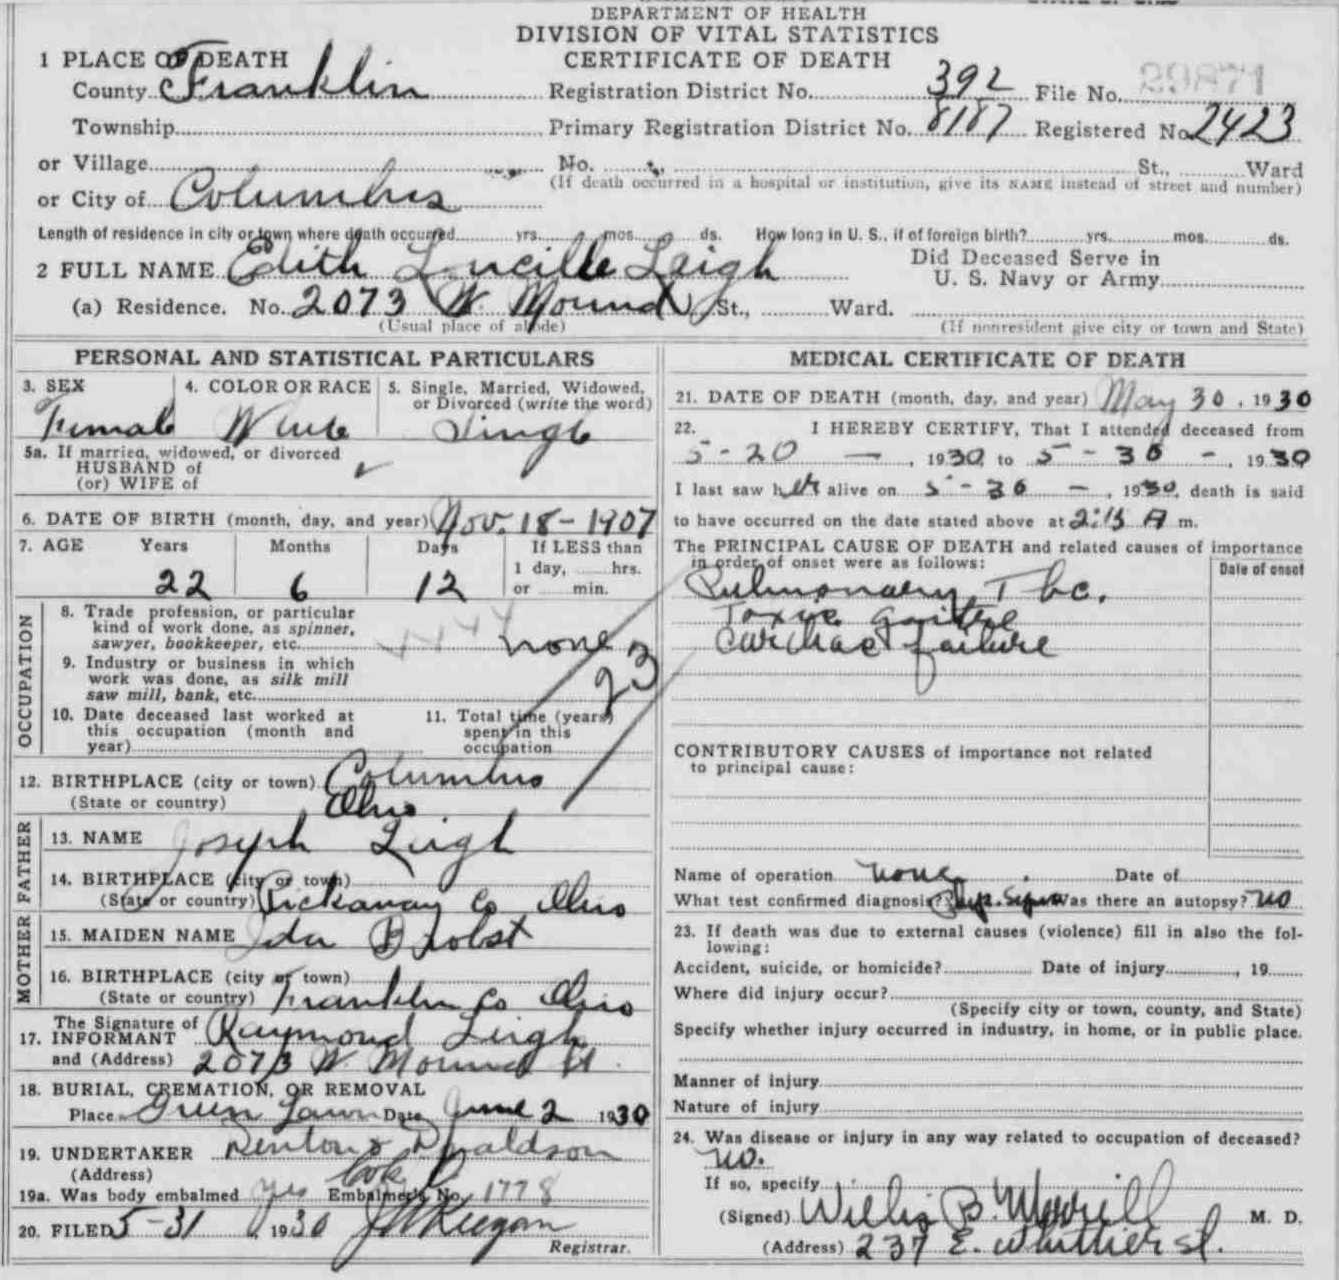 DEPARTMENT OF HEALTH
DIVISION OF VITAL STATISTICS
CERTIFICATE OF DEATH
1 PLACE OF DEATH
County Franklin Registration District No. 392 File No. 29871
Township Primary Registration District No. 8187 Registered No. 2423
or Village No. St., Ward
(If death occurred in a hospital or institution, give its NAME instead of street and number)
or City of Columbus
Length of residence in city or town where death occurred yrs. mos. ds. How long in U. S., if of foreign birth? yrs. mos. ds.
2 FULL NAME Edith Lucille Leigh Did Deceased Serve in U. S. Navy or Army
(a) Residence. No. 2073 W. Mound St., Ward.
(Usual place of abode) (If nonresident give city or town and State)
PERSONAL AND STATISTICAL PARTICULARS
3. SEX 4. COLOR OR RACE 5. Single, Married, Widowed, or Divorced (write the word)
Female White Single
5a. If married, widowed, or divorced
HUSBAND of
(or) WIFE of
6. DATE OF BIRTH (month, day, and year) Nov. 18 - 1907
7. AGE Years Months Days If LESS than
1 day, hrs.
22 6 12 or min.
OCCUPATION
8. Trade profession, or particular
kind of work done, as spinner,
sawyer, bookkeeper, etc. none
23
9. Industry or business in which
work was done, as silk mill
saw mill, bank, etc.
10. Date deceased last worked at
this occupation (month and
year)
11. Total time (years)
spent in this
occupation
12. BIRTHPLACE (city or town) Columbus
(State or country) Ohio
FATHER
13. NAME Joseph Leigh
14. BIRTHPLACE (city or town)
(State or country) Pickaway Co Ohio
MOTHER
15. MAIDEN NAME Ida Brobst
16. BIRTHPLACE (city or town)
(State or country) Franklin Co Ohio
17. The Signature of
INFORMANT Raymond Leigh
and (Address) 2073 W. Mound St.
18. BURIAL, CREMATION, OR REMOVAL
Place Green Lawn Date June 2 1930
19. UNDERTAKER Denton Donaldson
(Address) Cook
19a. Was body embalmed yes Embalmer's No. 1778
20. FILED 5-31 1930 J W Keegan
Registrar.
MEDICAL CERTIFICATE OF DEATH
21. DATE OF DEATH (month, day, and year) May 30, 1930
22. I HEREBY CERTIFY, That I attended deceased from
5-20 -, 1930, to 5-30 -, 1930
I last saw her alive on 5-30 -, 1930, death is said
to have occurred on the date stated above at 2:15 A m.
The PRINCIPAL CAUSE OF DEATH and related causes of importance
in order of onset were as follows: Date of onset
Pulmonary Tbc.
Toxic goitre
Cardiac failure
CONTRIBUTORY CAUSES of importance not related
to principal cause:
Name of operation none Date of
What test confirmed diagnosis? Phys. Signs Was there an autopsy? no
23. If death was due to external causes (violence) fill in also the fol-
lowing:
Accident, suicide, or homicide? Date of injury, 19
Where did injury occur?
(Specify city or town, county, and State)
Specify whether injury occurred in industry, in home, or in public place.
Manner of injury
Nature of injury
24. Was disease or injury in any way related to occupation of deceased?
no.
If so, specify
(Signed) Willis B. Merrill M. D.
(Address) 237 E. Whittier St.